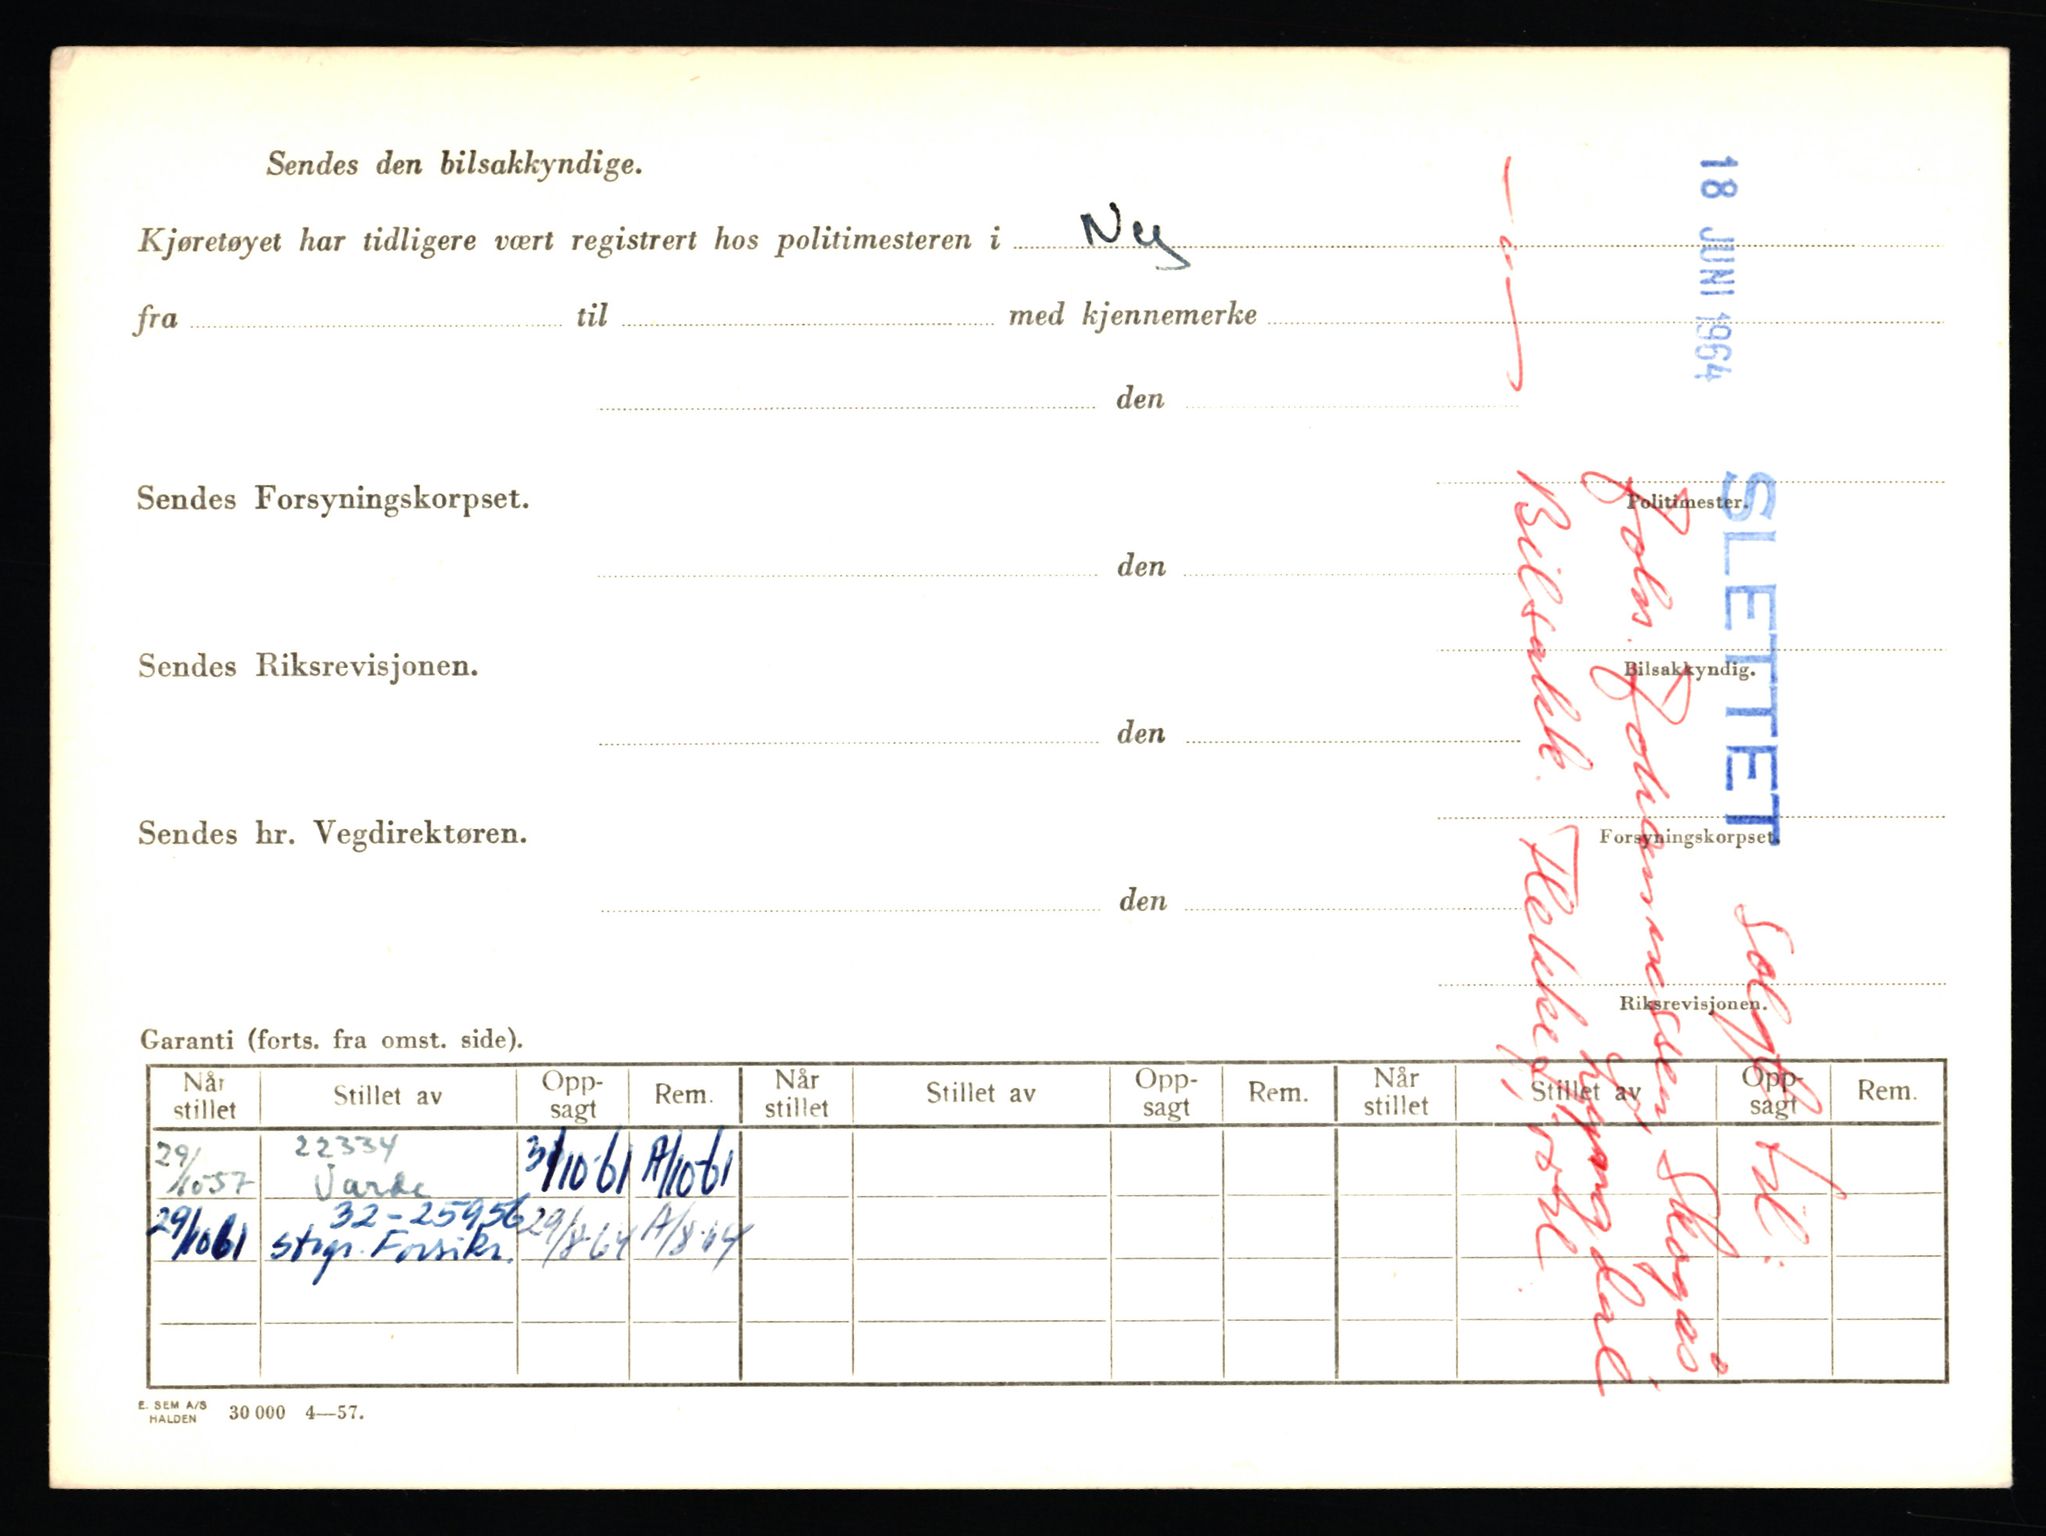 Sendes den bilsakkyndige.
Kjøretøyet har tidligere vært registrert hos politimesteren i Ny
fra til med kjennemerke
den
Politimester.
Sendes Forsyningskorpset.
den
Bilsakkyndig.
Sendes Riksrevisjonen.
den
Forsyningskorpset.
Sendes hr. Vegdirektøren.
den
Riksrevisjonen.
18 JUNI 1964
SLETTET
Solgt til:
Johs. Johannessen, Skogså
Bilsakk. Flekkefj.
Garanti (forts. fra omst. side).
Når stillet Stillet av Opp-sagt Rem. Når stillet Stillet av Opp-sagt Rem. Når stillet Stillet av Opp-sagt Rem.
29/10-57 22334 Varde 31/10-61 A/10-61
29/10-61 32-25956 Storgr. Forsikr. 29/8-64 A/8-64
E. SEM A/S
HALDEN 30 000 4—57.